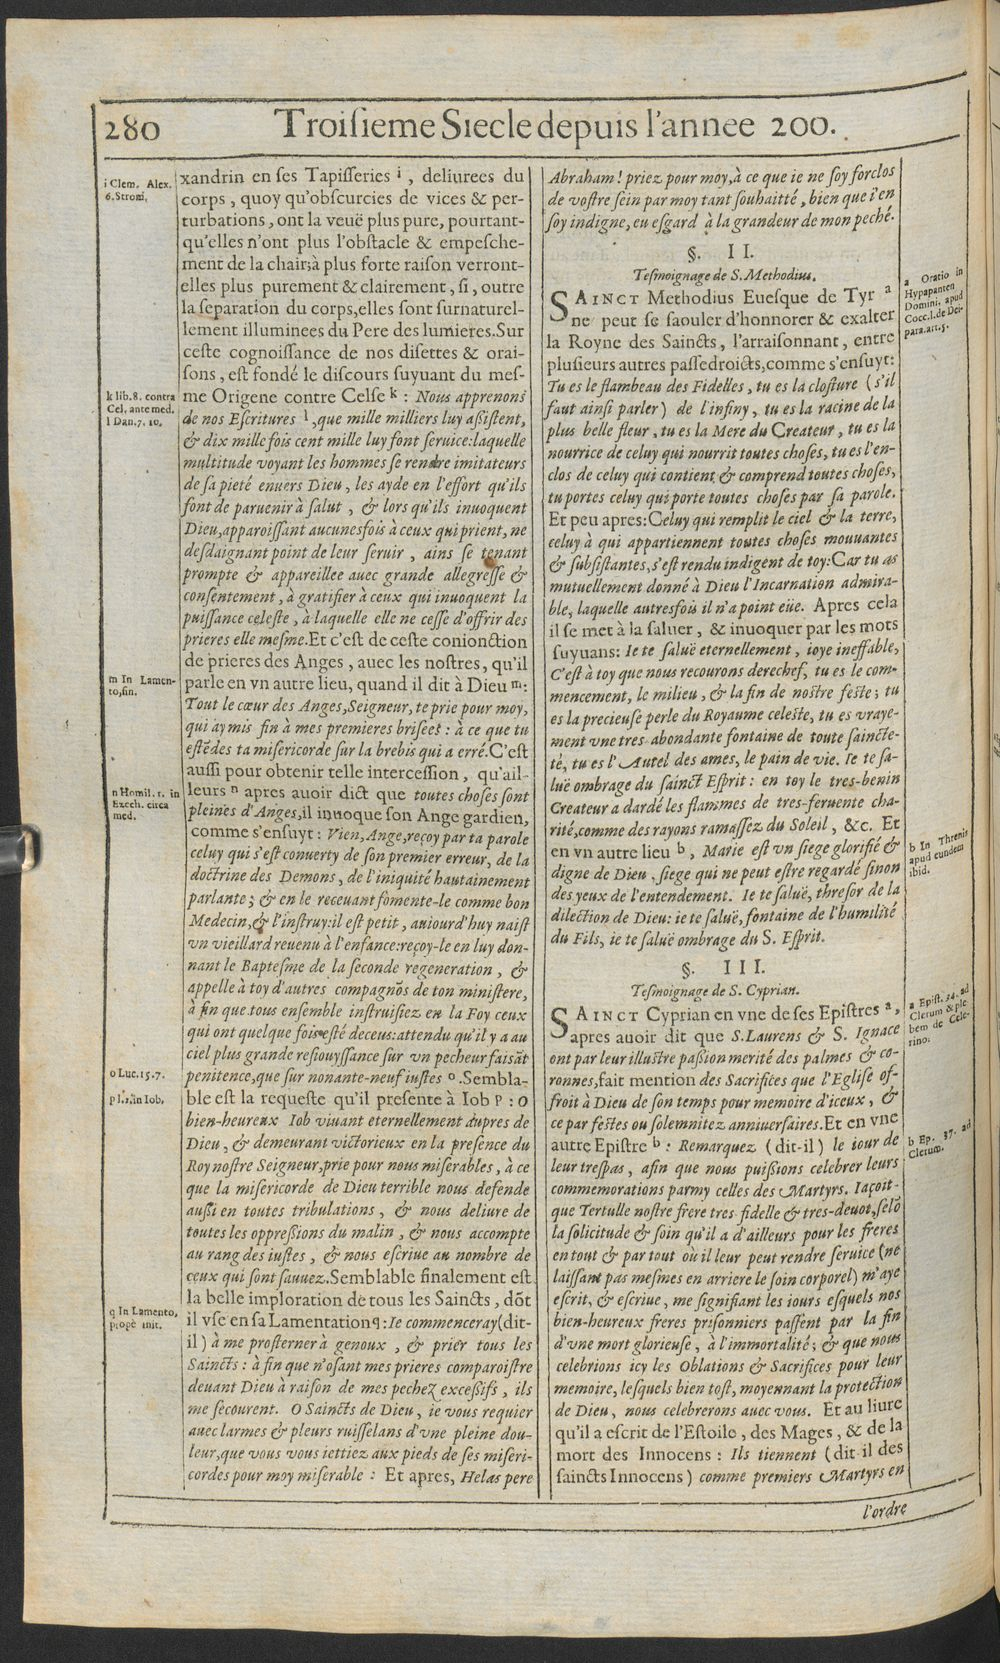 280
Troisieme Siecle depuis l'annee 200.
i Clem. Alex.
6. Strom.
xandrin en ſes Tapiſſeries i, deliurees du
corps, quoy qu'obſcurcies de vices & per-
turbations, ont la veuë plus pure, pourtant-
qu'elles n'ont plus l'obſtacle & empeſche-
ment de la chair, à plus forte raiſon verront-
elles plus purement & clairement, ſi, outre
la ſeparation du corps, elles ſont ſurnaturel-
lement illuminees du Pere des lumieres. Sur
ceſte cognoiſſance de nos diſettes & orai-
ſons, eſt fondé le diſcours ſuyuant du meſ-
k lib. 8. contra
Cel. ante med.
l Dan. 7. 10.
me Origene contre Celſe k : Nous apprenons
de nos Eſcritures l, que mille milliers luy aßiſtent,
& dix mille fois cent mille luy font ſeruice: laquelle
multitude voyant les hommes ſe rendre imitateurs
de ſa pieté enuers Dieu, les ayde en l'effort qu'ils
font de paruenir à ſalut, & lors qu'ils inuoquent
Dieu, apparoiſſant aucunesfois à ceux qui prient, ne
deſdaignant point de leur ſeruir, ains ſe tenant
prompte & appareillee auec grande allegreſſe &
conſentement, à gratifier à ceux qui inuoquent la
puiſſance celeſte, à laquelle elle ne ceſſe d'offrir des
prieres elle meſme. Et c'eſt de ceſte conionction
de prieres des Anges, auec les noſtres, qu'il
m In Lamen-
to, fin.
parle en vn autre lieu, quand il dit à Dieu m:
Tout le cœur des Anges, Seigneur, te prie pour moy,
qui ay mis fin à mes premieres briſees : à ce que tu
eſtēdes ta miſericorde ſur la brebis qui a erré. C'eſt
auſſi pour obtenir telle interceſſion, qu'ail-
n Homil. 1. in
Ezech. circa
med.
leurs n apres auoir dict que toutes choſes ſont
pleines d'Anges, il inuoque ſon Ange gardien,
comme s'enſuyt : Vien, Ange, reçoy par ta parole
celuy qui s'eſt conuerty de ſon premier erreur, de la
doctrine des Demons, de l'iniquité hautainement
parlante; & en le receuant fomente-le comme bon
Medecin, & l'inſtruy: il eſt petit, auiourd'huy naiſt
vn vieillard reuenu à l'enfance: reçoy-le en luy don-
nant le Bapteſme de la ſeconde regeneration, &
appelle à toy d'autres compagnōs de ton miniſtere,
à fin que tous enſemble inſtruiſiez en la Foy ceux
qui ont quelque fois eſté deceus: attendu qu'il y a au
ciel plus grande reſiouyſſance ſur vn pecheur faiſāt
o Luc. 15. 7.
penitence, que ſur nonante-neuf iuſtes o. Sembla-
in Iob.
ble eſt la requeſte qu'il preſente à Iob p : O
bien-heureux Iob viuant eternellement aupres de
Dieu, & demeurant victorieux en la preſence du
Roy noſtre Seigneur, prie pour nous miſerables, à ce
que la miſericorde de Dieu terrible nous defende
außi en toutes tribulations, & nous deliure de
toutes les oppreßions du malin, & nous accompte
au rang des iuſtes, & nous eſcriue au nombre de
ceux qui ſont ſauuez. Semblable finalement eſt
la belle imploration de tous les Saincts, dōt
q In Lamento,
propè init.
il vſe en ſa Lamentation q: Ie commenceray (dit-
il) à me proſterner à genoux, & prier tous les
Saincts : à fin que n'oſant mes prieres comparoiſtre
deuant Dieu à raiſon de mes pechez exceßifs, ils
me ſecourent. O Saincts de Dieu, ie vous requier
auec larmes & pleurs ruiſſelans d'vne pleine dou-
leur, que vous vous iettiez aux pieds de ſes miſeri-
cordes pour moy miſerable : Et apres, Helas pere
Abraham! priez pour moy, à ce que ie ne ſoy forclos
de voſtre ſein par moy tant ſouhaitté, bien que i'en
ſoy indigne, eu eſgard à la grandeur de mon peché.
§. II.
Teſmoignage de S. Methodius.
a Oratio in
Hypapanten
Domini, apud
Cocc. l. de Dei-
para. art. 5.
SAINCT Methodius Eueſque de Tyr a
ne peut ſe ſaouler d'honnorer & exalter
la Royne des Saincts, l'arraiſonnant, entre
pluſieurs autres paſſedroicts, comme s'enſuyt:
Tu es le flambeau des Fidelles, tu es la cloſture (s'il
faut ainſi parler) de l'infiny, tu es la racine de la
plus belle fleur, tu es la Mere du Createur, tu es la
nourrice de celuy qui nourrit toutes choſes, tu es l'en-
clos de celuy qui contient & comprend toutes choſes,
tu portes celuy qui porte toutes choſes par ſa parole.
Et peu apres: Celuy qui remplit le ciel & la terre,
celuy à qui appartiennent toutes choſes mouuantes
& ſubſiſtantes, s'eſt rendu indigent de toy: Car tu as
mutuellement donné à Dieu l'Incarnation admira-
ble, laquelle autresfois il n'a point eüe. Apres cela
il ſe met à la ſaluer, & inuoquer par les mots
ſuyuans: Ie te ſaluë eternellement, ioye ineffable,
C'eſt à toy que nous recourons derechef, tu es le com-
mencement, le milieu, & la fin de noſtre feſte; tu
es la precieuſe perle du Royaume celeſte, tu es vraye-
ment vne tres-abondante fontaine de toute ſaincte-
té, tu es l'Autel des ames, le pain de vie. Ie te ſa-
luë ombrage du ſainct Eſprit : en toy le tres-benin
Createur a dardé les flammes de tres-feruente cha-
rité, comme des rayons ramaſſez du Soleil, &c. Et
b In Threnis
apud eundem
ibid.
en vn autre lieu b, Marie eſt vn ſiege glorifié &
digne de Dieu, ſiege qui ne peut eſtre regardé ſinon
des yeux de l'entendement. Ie te ſaluë, threſor de la
dilection de Dieu: ie te ſaluë, fontaine de l'humilité
du Fils, ie te ſaluë ombrage du S. Eſprit.
§. III.
Teſmoignage de S. Cyprian.
a Epiſt. 34. ad
Clerum & ple
bem de Cele-
rino.
SAINCT Cyprian en vne de ſes Epiſtres a,
apres auoir dit que S. Laurens & S. Ignace
ont par leur illuſtre paßion merité des palmes & co-
ronnes, fait mention des Sacrifices que l'Egliſe of-
froit à Dieu de ſon temps pour memoire d'iceux, &
ce par feſtes ou ſolemnitez anniuerſaires. Et en vne
b Ep. 37. ad
Clerum.
autre Epiſtre b : Remarquez (dit-il) le iour de
leur treſpas, afin que nous puißions celebrer leurs
commemorations parmy celles des Martyrs. Iaçoit-
que Tertulle noſtre frere tres-fidelle & tres-deuot, ſelō
la ſolicitude & ſoin qu'il a d'ailleurs pour les freres
en tout & par tout où il leur peut rendre ſeruice (ne
laiſſant pas meſmes en arriere le ſoin corporel) m'aye
eſcrit, & eſcriue, me ſignifiant les iours eſquels nos
bien-heureux freres priſonniers paſſent par la fin
d'vne mort glorieuſe, à l'immortalité; & que nous
celebrions icy les Oblations & Sacrifices pour leur
memoire, leſquels bien toſt, moyennant la protection
de Dieu, nous celebrerons auec vous. Et au liure
qu'il a eſcrit de l'Eſtoile, des Mages, & de la
mort des Innocens : Ils tiennent (dit-il des
ſaincts Innocens) comme premiers Martyrs en
l'ordre